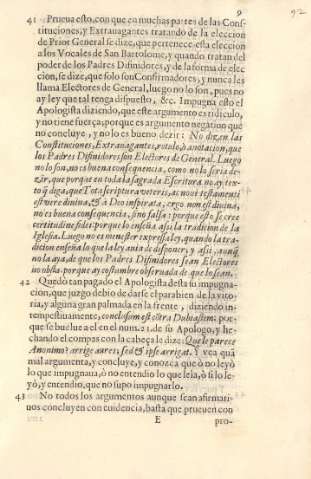 9
92
41 Prueua esto, con que en muchas partes de las Cons-
tituciones, y Extrauagantes tratando de la eleccion
de Prior General se dize, que pertenece esta eleccion
a los Vocales de San Bartolome, y quando tratan del
poder de los Padres Difinidores, y de la forma de elec
cion, se dize, que solo son Confirmadores, y nunca les
llama Electores de General, luego no lo son, pues no
ay ley que tal tenga dispuesto, &c. Impugna esto el
Apologista diziendo, que este argumento es ridiculo,
y no tiene fuerça, porque es argumento negatiuo que
no concluye, y no lo es bueno dezir: No dizen las
Constituciones, Extrauagantes, rotulo, ò anotacion, que
los Padres Difinidores son Electores de General. Luego
no lo son, no es buena consequencia, como no lo seria de-
zir, que porque en toda la sagrada Escritura no ay tex-
to q̃ diga, que Tota scriptura veteris, ac noui testamenti
est vere diuina, & à Deo inspirata, ergo non est diuina,
no es buena consequencia, sino falsa: porque esto se cree
certitudine fidei: porque lo enseña assi la tradicion de la
Iglesia. Luego no es menester expressa ley, quando la tra-
dicion enseña lo que la ley auia de disponer, y assi, aunq̃
no la aya, de que los Padres Difinidores sean Electores
no obsta, porque ay costumbre obseruada de que lo sean.
42 Quedò tan pagado el Apologista desta su impugna-
cion, que juzgo debio de darse el parabien de la vito-
ria, y alguna gran palmada en la frente, diziendo in-
tempestiuamente, conclusum est contra
que
se buelue a el en el num. 21. de su Apologo, y he-
chando el compas con la cabeça le dize: Que le parece
Anonimo? arrige aures, sed & ipse arrigat. Y vea quã
mal argumenta, y concluye, y conozca que ò no leyò
lo que impugnaua, ò no entendio lo que leia, ò si lo le-
yò, y entendio, que no supo impugnarlo.
43 No todos los argumentos aunque sean afirmati-
uos concluyen con euidencia, basta que prueuen con
E
pro-